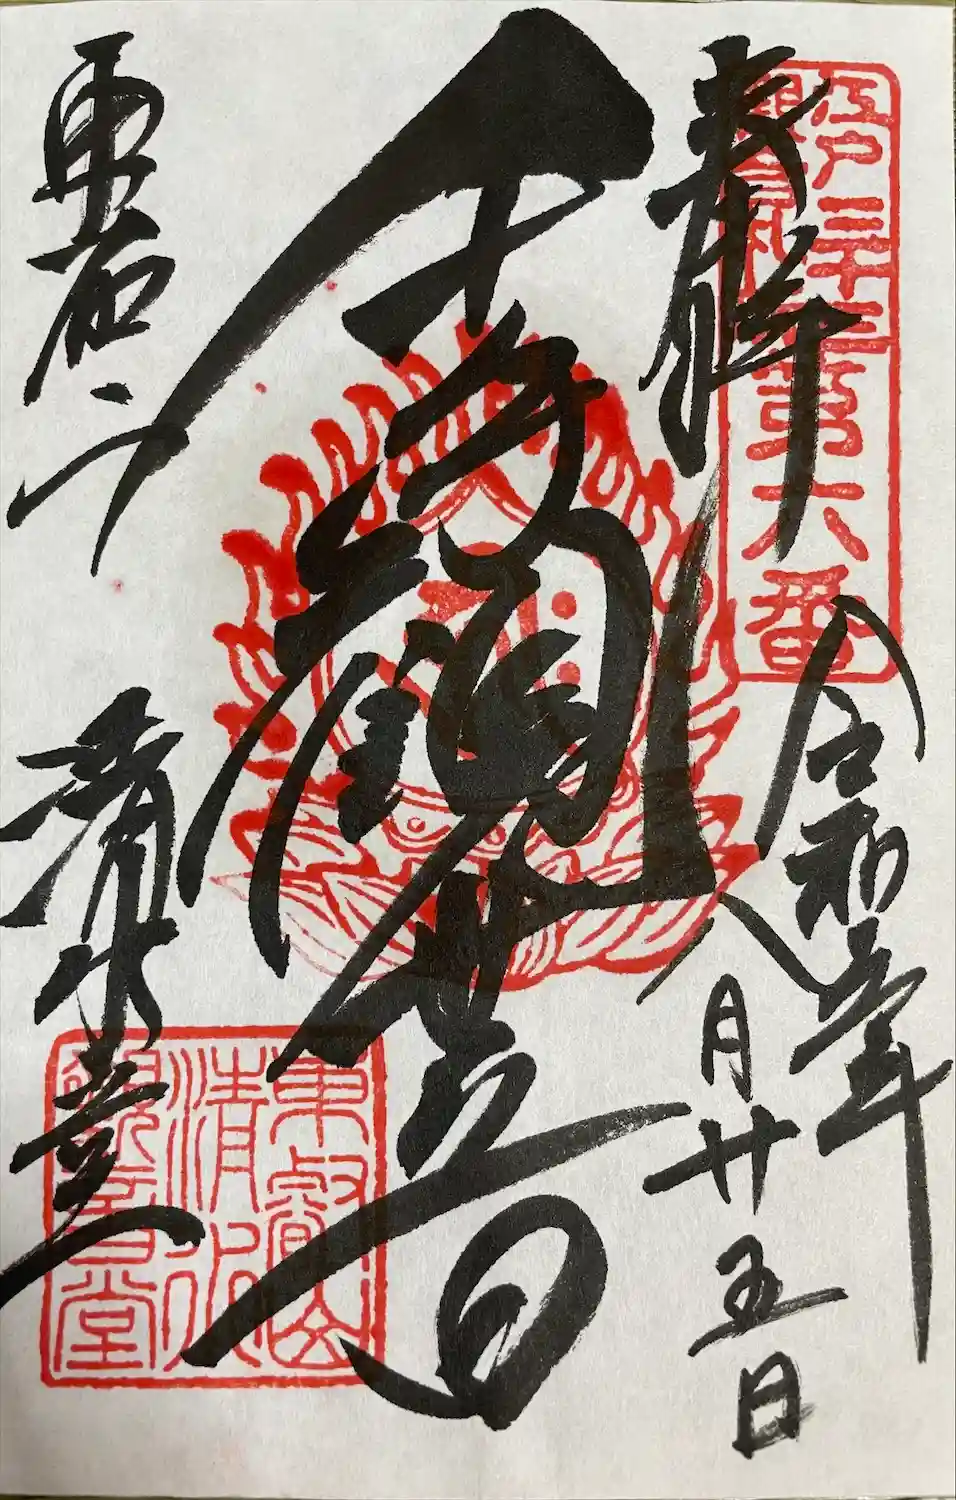 江戸三十三
観音札所
第六番
奉拝
令和五年
八月廿五日
千手観世音
東叡山
清水堂
東叡山
清水
観音堂